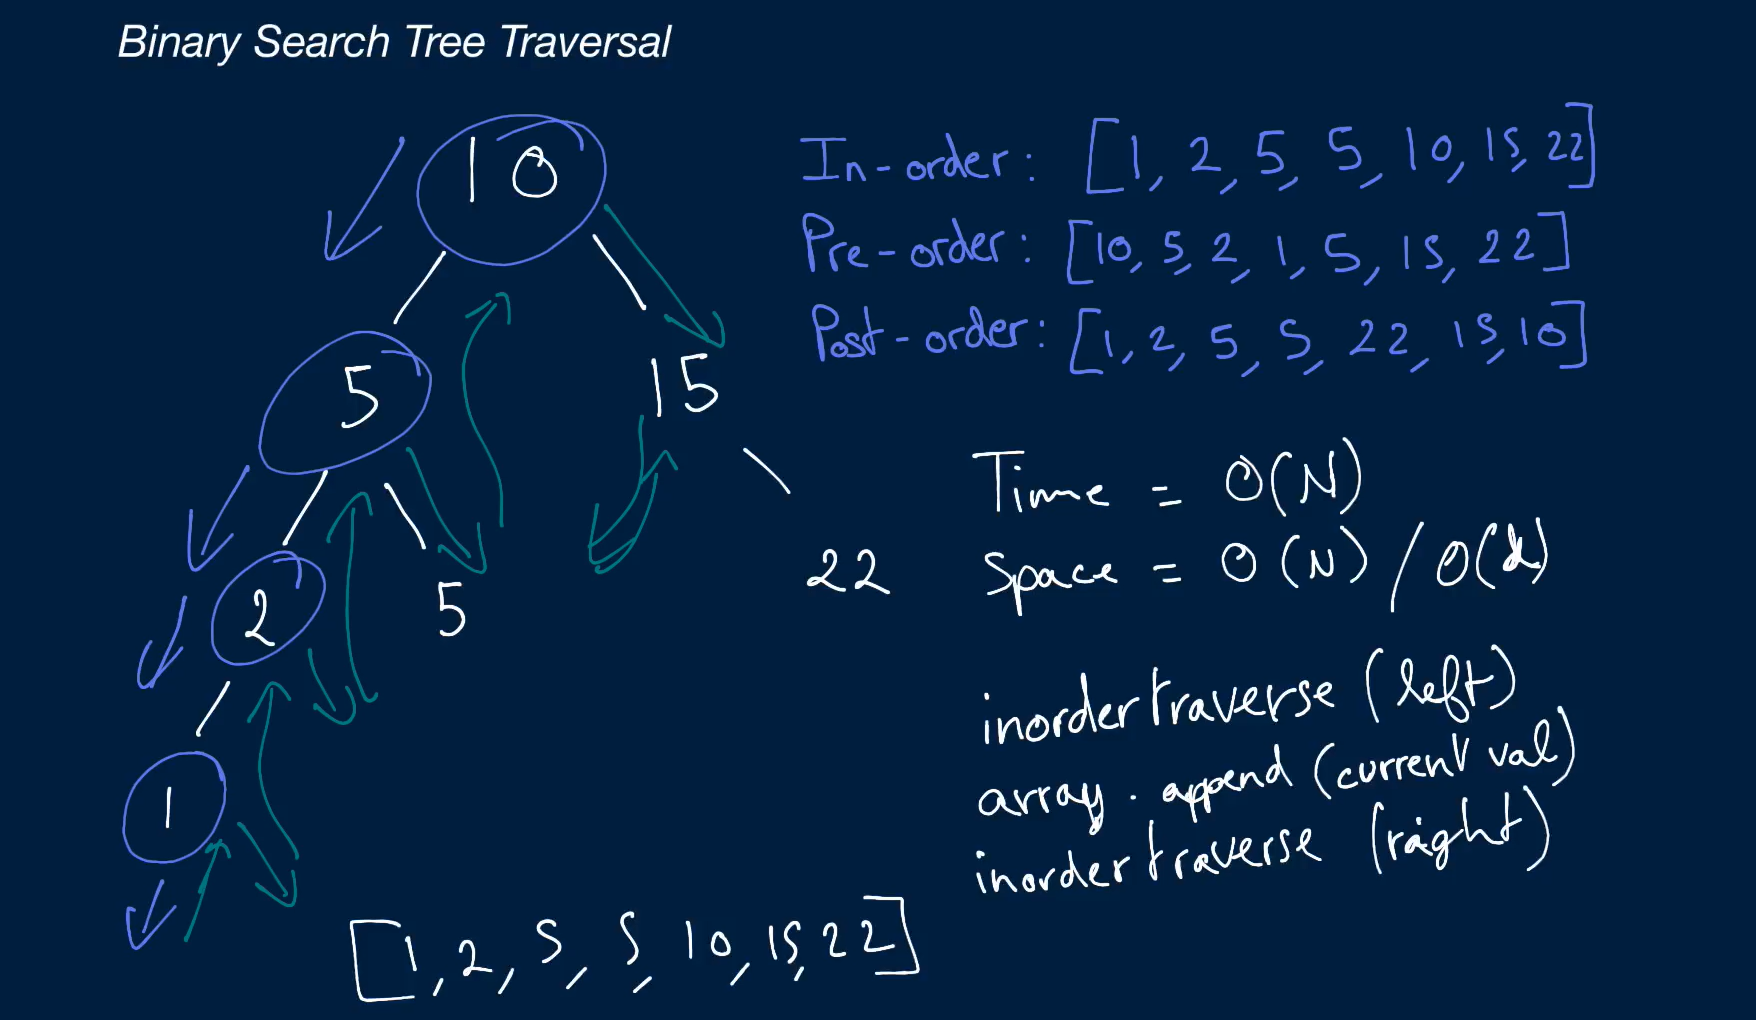 Binary Search Tree Traversal
10
5
15
2
5
22
1
[1, 2, 5, 5, 10, 15, 22]
In-order: [1, 2, 5, 5, 10, 15, 22]
Pre-order: [10, 5, 2, 1, 5, 15, 22]
Post-order: [1, 2, 5, 5, 22, 15, 10]
Time = O(N)
Space = O(N) / O(d)
inordertraverse (left)
array.append (current val)
inordertraverse (right)